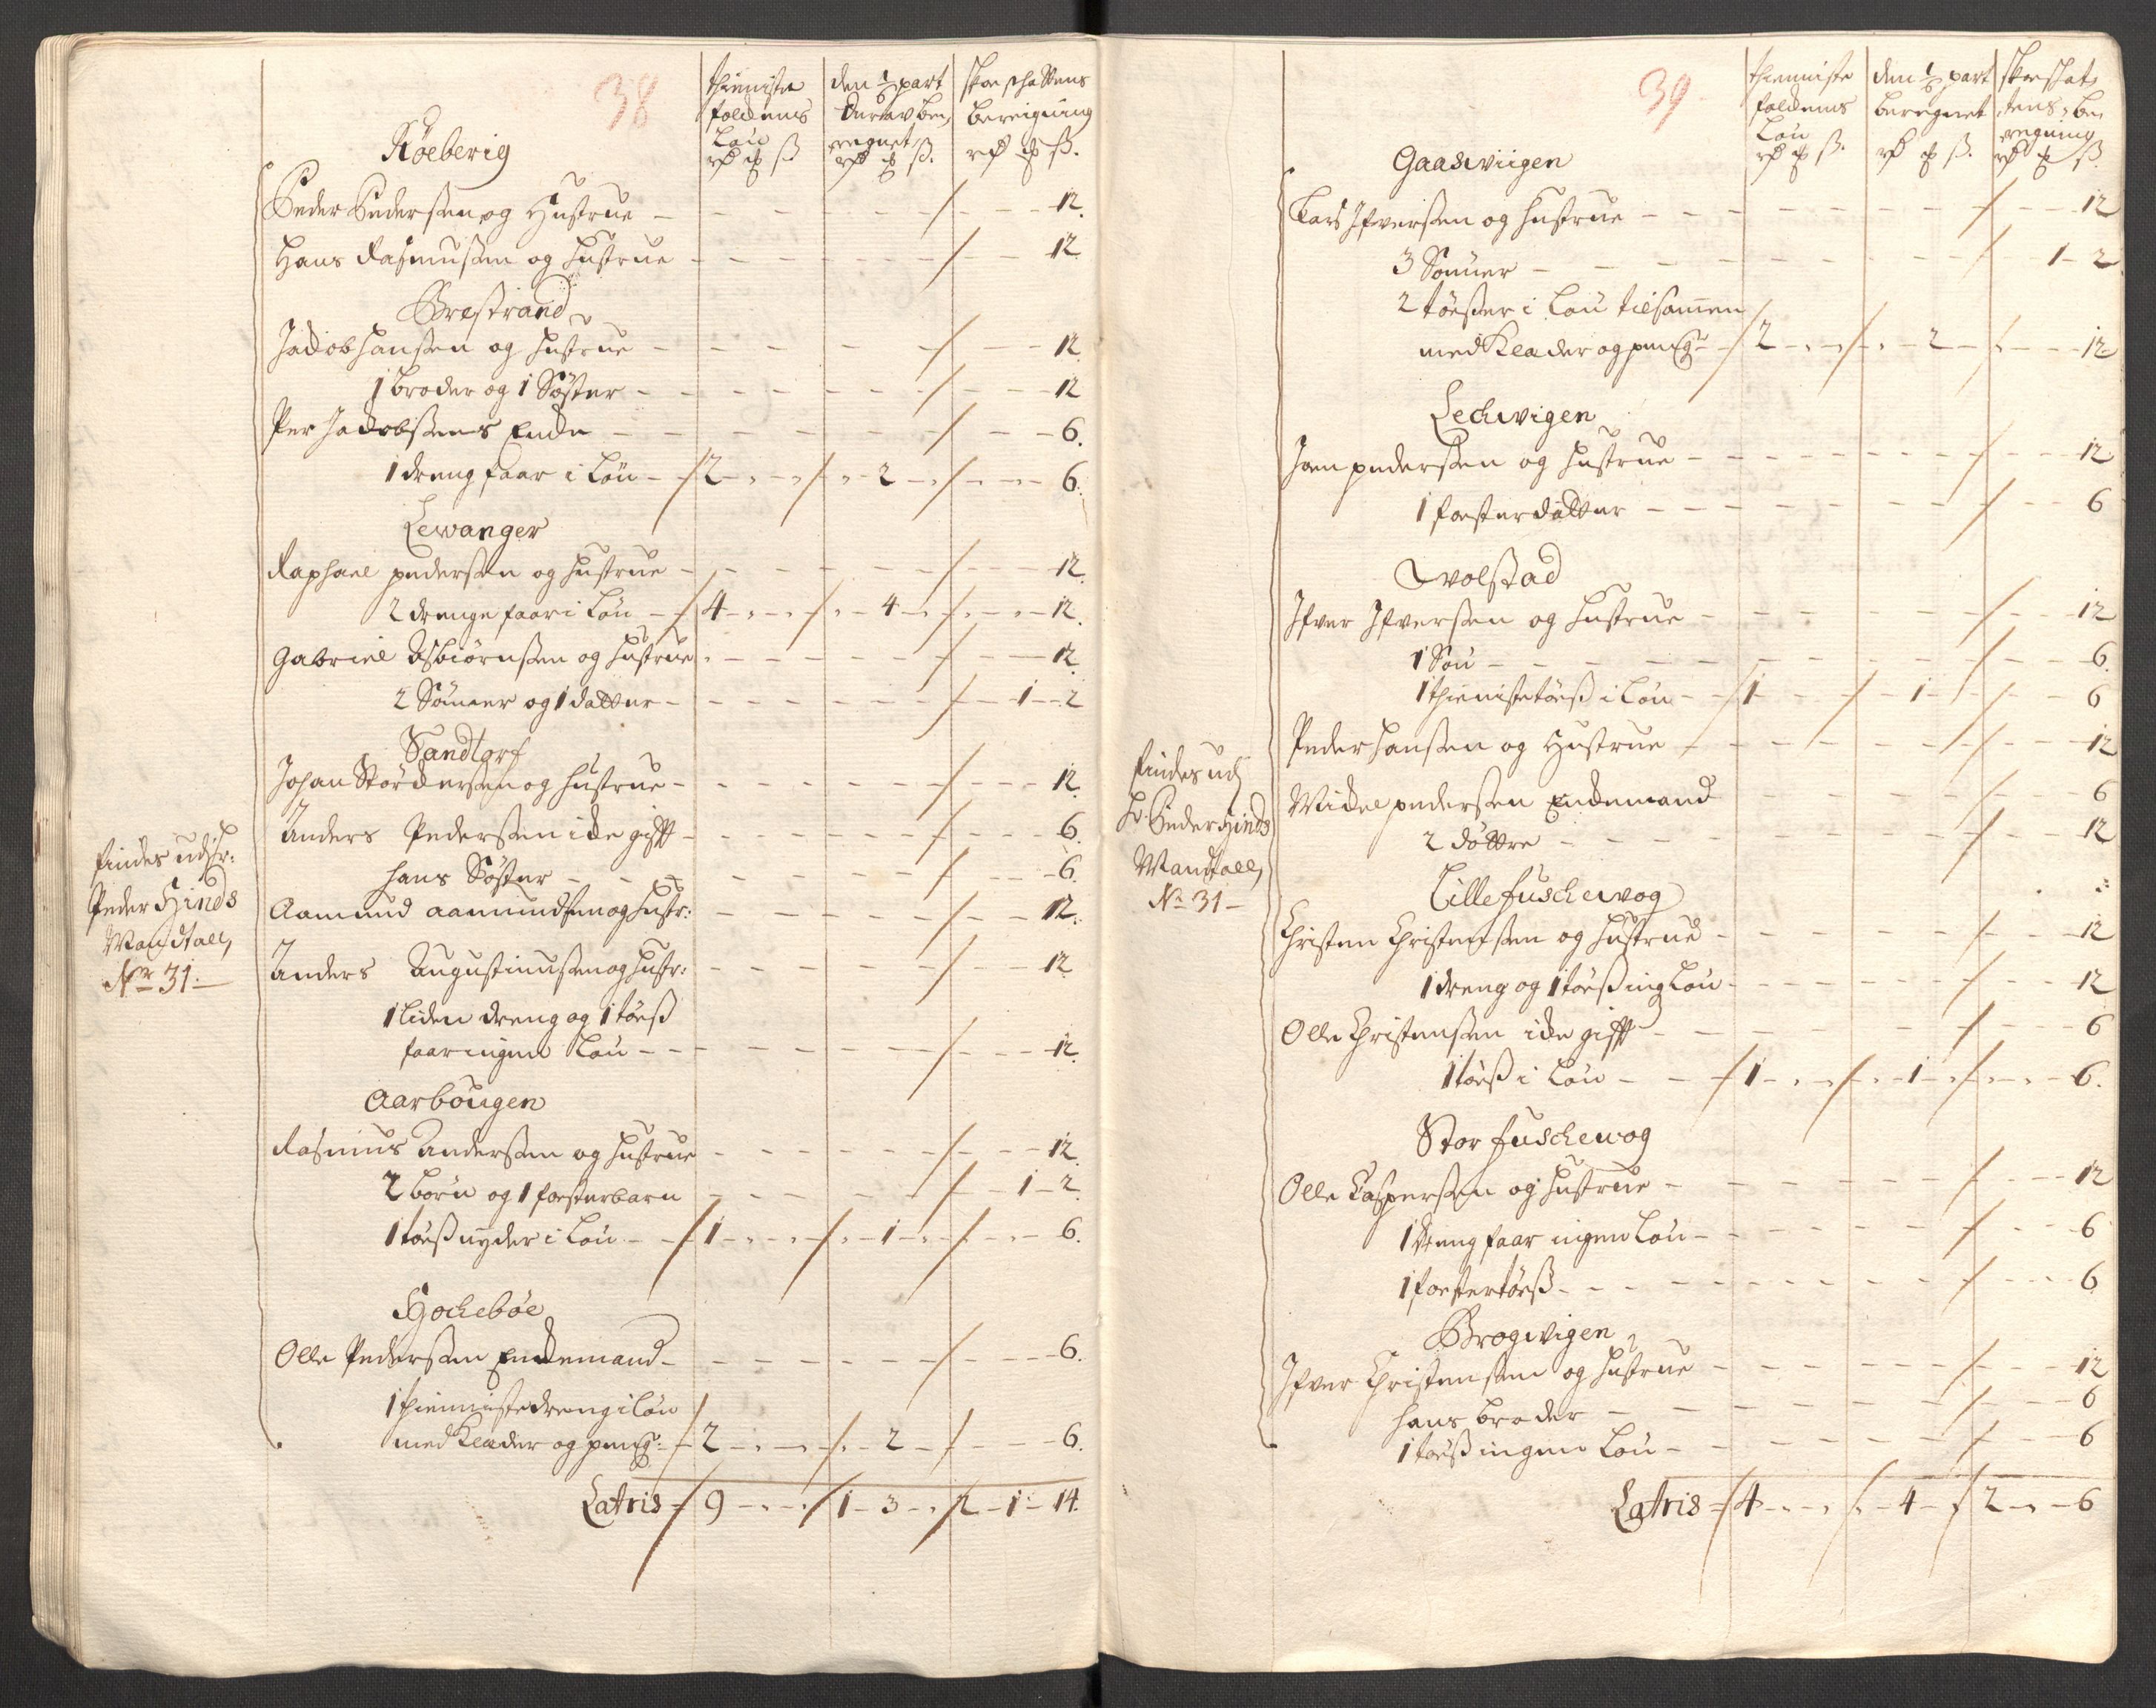 38
thieniste
folckens
Løn
rd mk ß
den 1/6 part
Durav be,
regnet
rd mk ß.
skoe schattens
bereigning
rd mk ß.
Røeberig
Peder Pedersen og Hustrue - 12.
Hans Rasmusen og Hustrue - 12.
Grestrand
Jacob hansen og hustrue - 12
1 broder og 1 Søster - 12
Per Jacobsens Encke - 6.
1 dreng faar i Løn - 2 - 2 - 6.
Lewanger
Raphael pedersen og hustrue - 12.
2 drenge faar i Løn - 4 - 4 - 12.
Gabriel Asbiørnsen og hustrue - 12.
2 Sønner og 1 datter - 1 - 2
Sandtorf
Johan Størckersen og hustrue - 12.
Anders Pedersen icke gifft - 6.
hans Søster - 6.
Aamund aamundsen og hustr: - 12.
Anders Augustinusen og hustr: - 12
1 liden dreng og 1 tøes
faar ingen Løn - 12.
Aarbougen
Rasmus Andersen og hustrue - 12.
2 børn og 1 fosterbarn - 1 - 2.
1 tøeß nyder i Løn - 1 - 1 - 6.
Hochebøe
Olle Pedersen Enckemand - 6.
1 thienniste dreng i Løn
med Klæder og peng: - 2 - 2 - 6.
Latris - 9 - 1 - 3 - 2 - 1 - 14.
findes udj hr:
Peder Hinds
Mandtall,
No 31.
39
thienniste
folckens
Løn
rd mk ß.
den 1/6 part
beregnet
rd mk ß.
skoeskat,
tens, be,
regning
rd mk ß.
Gaaswiigen
Lars Ifversen og hustrue - 12
3 Sønner - 1 - 2
2 tøeser i Løn tilsamen
med Klæder og peng - 2 - 2 - 12
Lechwigen
Joen pedersen og hustrue - 12
1 fosterdatter - 6
Qwolstad
Ifver Ifversen og hustrue - 12
1 Søn - 6.
1 thienistetøeß i Løn - 1 - 1 - 6
Peder hansen og Hustrue - 12
Mickel pedersen Enckemand - 6
2 døttre - 12
Lille fuschewog
Christen Christensen og hustrue - 12
1 dreng og 1 tøeß ing Løn - 12
Olle Christensen icke gifft - 6
1 tøeß i Løn - 1 - 1 - 6.
Stor fuschewog
Olle Caspersen og hustrue - 12
1 dreng faar ingen Løn - 6
1 fostertøeß - 6
Grogwigen
Ifver Christensen og hustrue - 12
hans broder - 6
1 tøeß ingen Løn - 6
Latris - 4 - 4 - 2 - 6
findes udj
hr. Peder Hinds
Mandtall,
No 31 -